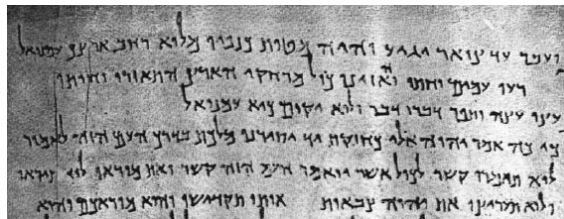 ועבר עד צואר יגיע והיה מטות כנפיו מלוא רחב ארצך עמנואל
רעו עמים וחתו והאזינו כול מרחקי הארץ התאזרו וחותו
עוצו עצה ותפר דברו דבר ולוא יקום כיא עמנואל
כי כה אמר יהוה אלי כחזקת יד יסירנו מלכת בדרך העם הזה לאמור
לוא תואמרו קשר לכול אשר יואמר העם הזה קשר ואת מוראו לוא תיראו
ולוא תעריצו את יהוה צבאות אותו תקדישו והוא מוראכם והוא